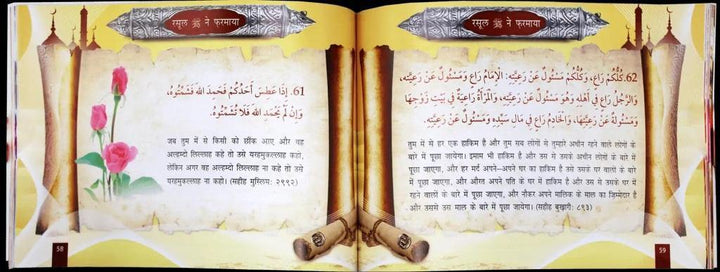 रसूल ﷺ ने फरमाया
61. إِذَا عَطِسَ أَحَدُكُمْ فَحَمِدَ اللهَ فَشَمِّتُوهُ،
وَإِنْ لَمْ يَحْمَدِ اللهَ فَلَا تُشَمِّتُوهُ.
जब तुम में से किसी को छींक आए और वह
अल्हम्दो लिल्लाह कहे तो उसे यरहमुकल्लाह कहो,
लेकिन अगर वह अल्हम्दो लिल्लाह ना कहे तो उसे
यरहमुकल्लाह ना कहो। (सहीह मुस्लिमः २९९२)
58
रसूल ﷺ ने फरमाया
62. كُلُّكُمْ رَاعٍ، وَكُلُّكُمْ مَسْئُولٌ عَنْ رَعِيَّتِهِ: الْإِمَامُ رَاعٍ وَمَسْئُولٌ عَنْ رَعِيَّتِهِ،
وَالرَّجُلُ رَاعٍ فِي أَهْلِهِ وَهُوَ مَسْئُولٌ عَنْ رَعِيَّتِهِ، وَالْمَرْأَةُ رَاعِيَةٌ فِي بَيْتِ زَوْجِهَا
وَمَسْئُولَةٌ عَنْ رَعِيَّتِهَا، وَالْخَادِمُ رَاعٍ فِي مَالِ سَيِّدِهِ وَمَسْئُولٌ عَنْ رَعِيَّتِهِ.
तुम में से हर एक हाकिम है और तुम सब लोगों से तुम्हारे अधीन रहने वाले लोगों के
बारे में पूछा जायेगा। इमाम भी हाकिम है और उस से उसके अधीन लोगों के बारे में
पूछा जाएगा, और हर मर्द अपने-अपने घर का हाकिम है उसे उसके घर वालों के बारे
में पूछा जाएगा, और औरत अपने पति के घर में हाकिम है और उस से उसके घर में
रहने वालों के बारे में पूछा जाएगा, और नौकर अपने मालिक के माल का ज़िम्मेदार है
और उससे उस माल के बारे में पूछा जायेगा। (सहीह बुख़ारीः ८९३)
59